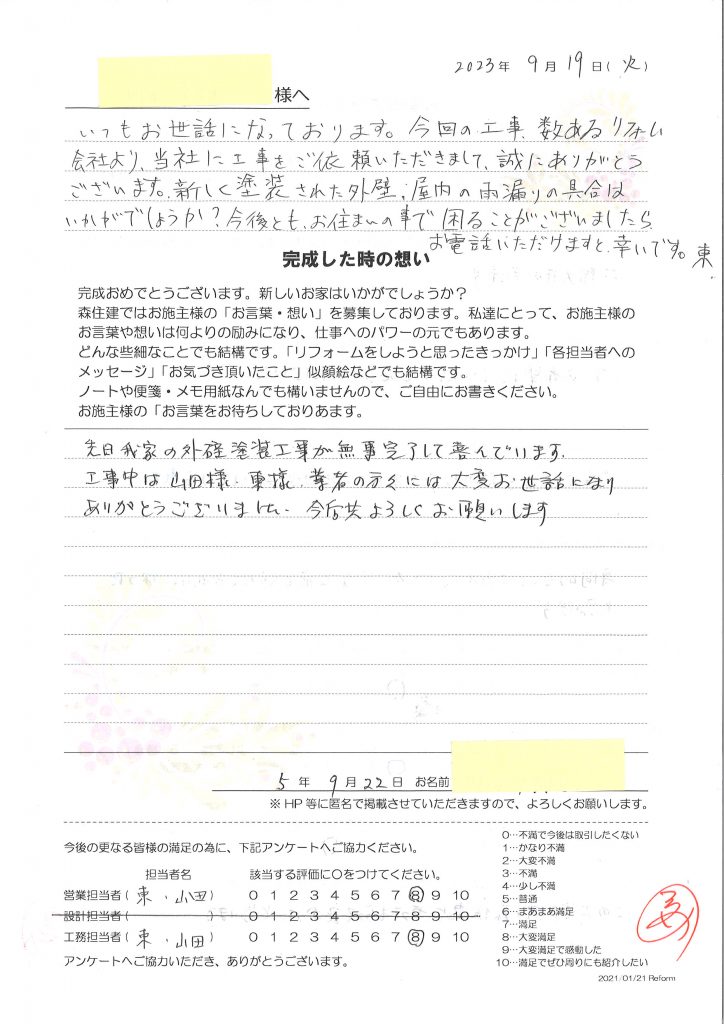 2023年 9月19日(火)
様へ
いつもお世話になっております。今回の工事、数あるリフォーム
会社より、当社に工事をご依頼いただきまして、誠にありがとう
ございます。新しく塗装された外壁、屋内の雨漏りの具合は
いかがでしょうか?今後とも、お住まいの事で困ることがございましたら
お電話いただけますと、幸いです。東
完成した時の想い
完成おめでとうございます。新しいお家はいかがでしょうか?
森住建ではお施主様の「お言葉・想い」を募集しております。私達にとって、お施主様の
お言葉や想いは何よりの励みになり、仕事へのパワーの元でもあります。
どんな些細なことでも結構です。「リフォームをしようと思ったきっかけ」「各担当者への
メッセージ」「お気づき頂いたこと」似顔絵などでも結構です。
ノートや便箋・メモ用紙なんでも構いませんので、ご自由にお書きください。
お施主様の「お言葉をお待ちしておりあます。
先日我家の外硅塗装工事が無事完了して喜んでいます.
工事中は山田様・東様、業者の方々には大変お世話になり
ありがとうございました. 今后共よろしくお願いします
5年 9月22日 お名前
※HP等に匿名で掲載させていただきますので、よろしくお願いします。
今後の更なる皆様の満足の為に、下記アンケートへご協力ください。
担当者名 該当する評価に○をつけてください。
営業担当者( 東・山田 ) 0 1 2 3 4 5 6 7 8 9 10
設計担当者( ) 0 1 2 3 4 5 6 7 8 9 10
工務担当者( 東・山田 ) 0 1 2 3 4 5 6 7 8 9 10
アンケートへご協力いただき、ありがとうございます。
0…不満で今後は取引したくない
1…かなり不満
2…大変不満
3…不満
4…少し不満
5…普通
6…まあまあ満足
7…満足
8…大変満足
9…大変満足で感動した
10…満足でぜひ周りにも紹介したい
2021/01/21 Reform